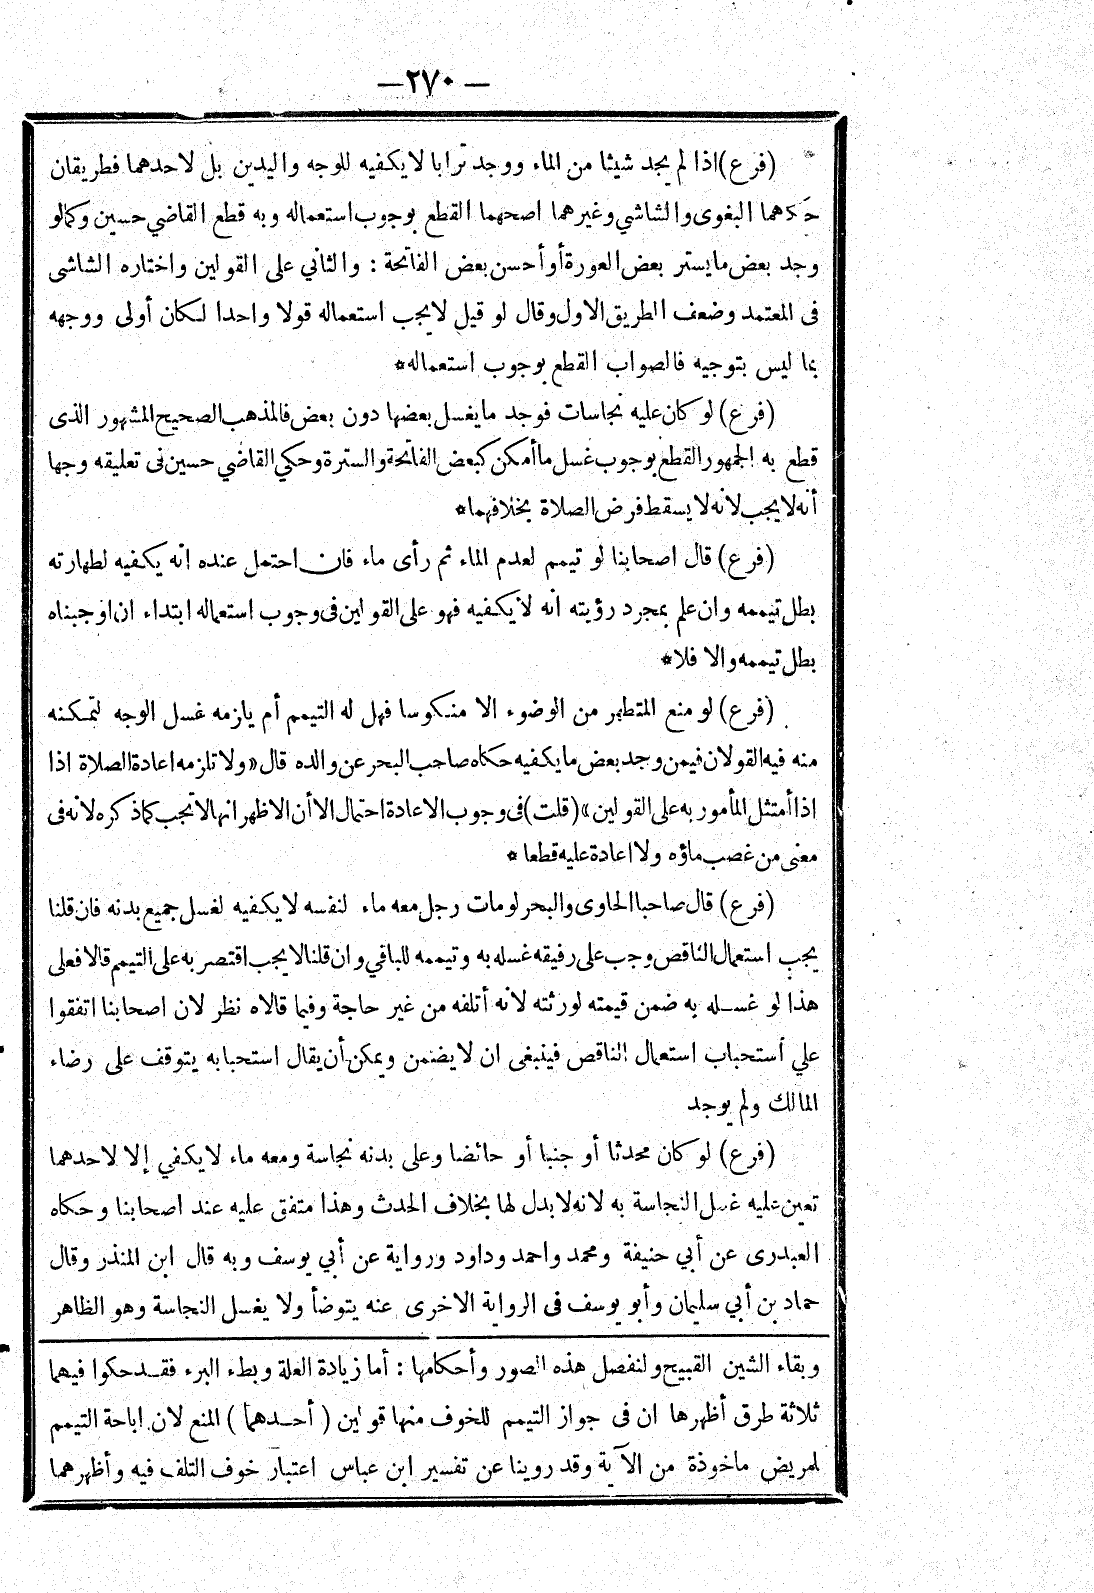 — ٢٧٠ —
(فرع) اذا لم يجد شيئا من الماء ووجد ترابا لا يكفيه للوجه واليدين بل لاحدهما فطريقان
حكاهما البغوى والشاشي وغيرهما اصحهما القطع بوجوب استعماله وبه قطع القاضي حسين وكما لو
وجد بعض ما يستر بعض العورة أو أحسن بعض الفاتحة : والثاني على القولين واختاره الشاشى
فى المعتمد وضعف الطريق الاول وقال لو قيل لا يجب استعماله قولا واحدا لكان أولى ووجهه
بما ليس بتوجيه فالصواب القطع بوجوب استعماله*
(فرع) لو كان عليه نجاسات فوجد ما يغسل بعضها دون بعض فالمذهب الصحيح المشهور الذى
قطع به الجمهور القطع بوجوب غسل ما أمكن كبعض الفاتحة والسترة وحكي القاضي حسين فى تعليقه وجها
أنه لا يجب لانه لا يسقط فرض الصلاة بخلافهما*
(فرع) قال اصحابنا لو تيمم لعدم الماء ثم رأى ماء فان احتمل عنده انه يكفيه لطهارته
بطل تيممه وان علم بمجرد رؤيته انه لا يكفيه فهو على القولين فى وجوب استعماله ابتداء ان اوجبناه
بطل تيممه والا فلا*
(فرع) لو منع المتطهر من الوضوء الا منكوسا فهل له التيمم أم يلزمه غسل الوجه لتمكنه
منه فيه القولان فيمن وجد بعض ما يكفيه حكاه صاحب البحر عن والده قال «ولا تلزمه اعادة الصلاة اذا
اذا أمتثل المأمور به على القولين» (قلت) فى وجوب الاعادة احتمال الا أن الاظهر انها لا تجب كما ذكره لانه فى
معنى من غصب ماؤه ولا اعادة عليه قطعا *
(فرع) قال صاحبا الحاوى والبحر لو مات رجل معه ماء لنفسه لا يكفيه لغسل جميع بدنه فان قلنا
يجب استعمال الناقص وجب على رفيقه غسله به وتيممه للباقي وان قلنا لا يجب اقتصر به على التيمم قالا فعلى
هذا لو غسله به ضمن قيمته لورثته لانه أتلفه من غير حاجة وفيما قالاه نظر لان اصحابنا اتفقوا
علي أستحباب استعمال الناقص فينبغى ان لا يضمن ويمكن أن يقال استحبابه يتوقف على رضاء
المالك ولم يوجد
(فرع) لو كان محدثا أو جنبا أو حائضا وعلى بدنه نجاسة ومعه ماء لا يكفي إلا لاحدهما
تعين عليه غسل النجاسة به لانه لا بدل لها بخلاف الحدث وهذا متفق عليه عند اصحابنا وحكاه
العبدرى عن أبي حنيفة ومحمد واحمد وداود ورواية عن أبي يوسف وبه قال ابن المنذر وقال
حماد بن أبي سليمان وأبو يوسف فى الرواية الاخرى عنه يتوضأ ولا يغسل النجاسة وهو الظاهر
وبقاء الشين القبيح ولنفصل هذه الصور وأحكامها : أما زيادة العلة وبطء البرء فقد حكوا فيهما
ثلاثة طرق أظهرها ان فى جواز التيمم للخوف منها قولين (أحدهما) المنع لان اباحة التيمم
لمريض ماخوذة من الآية وقد روينا عن تفسير ابن عباس اعتبار خوف التلف فيه وأظهرهما